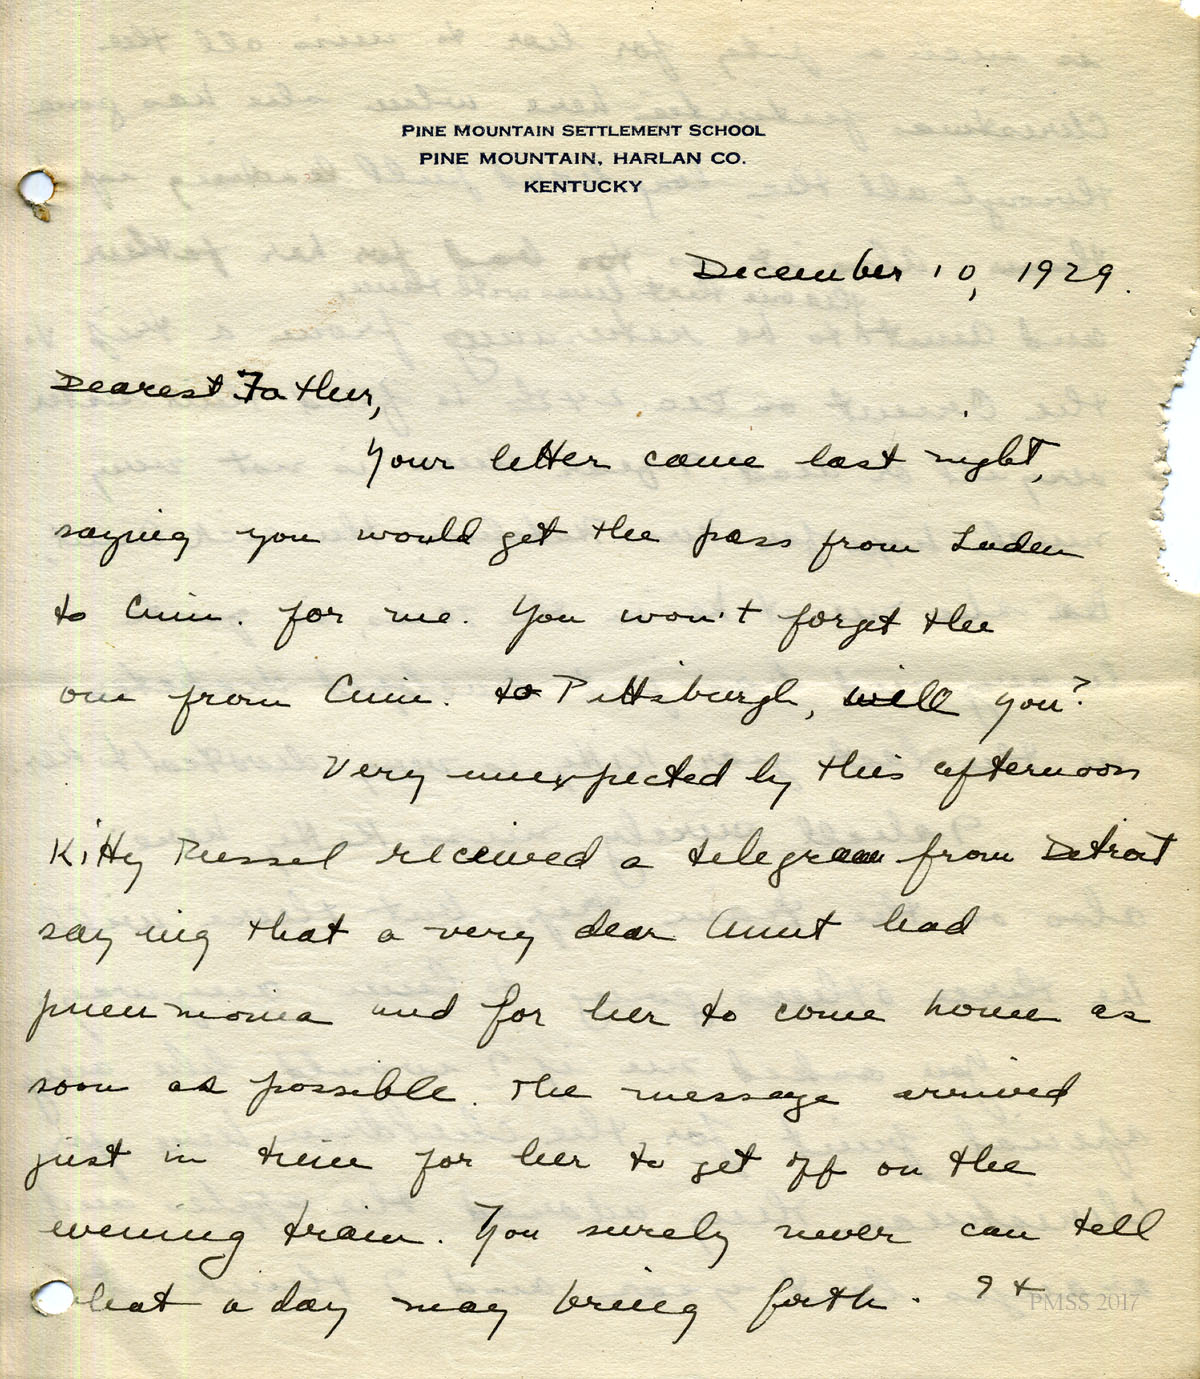 PINE MOUNTAIN SETTLEMENT SCHOOL
PINE MOUNTAIN, HARLAN CO.
KENTUCKY
December 10, 1929.
Dearest Father,
Your letter came last night,
saying you would get the pass from Laden
to Cinn. for me. You won't forget the
one from Cinn. to Pittsburgh, will you?
Very unexpectedly this afternoon
Kitty Russel received a telegram from Detroit
saying that a very dear Aunt had
pneumonia and for her to come home as
soon as possible. The message arrived
just in time for her to get off on the
evening train. You surely never can tell
what a day may bring forth. It
PMSS 2017